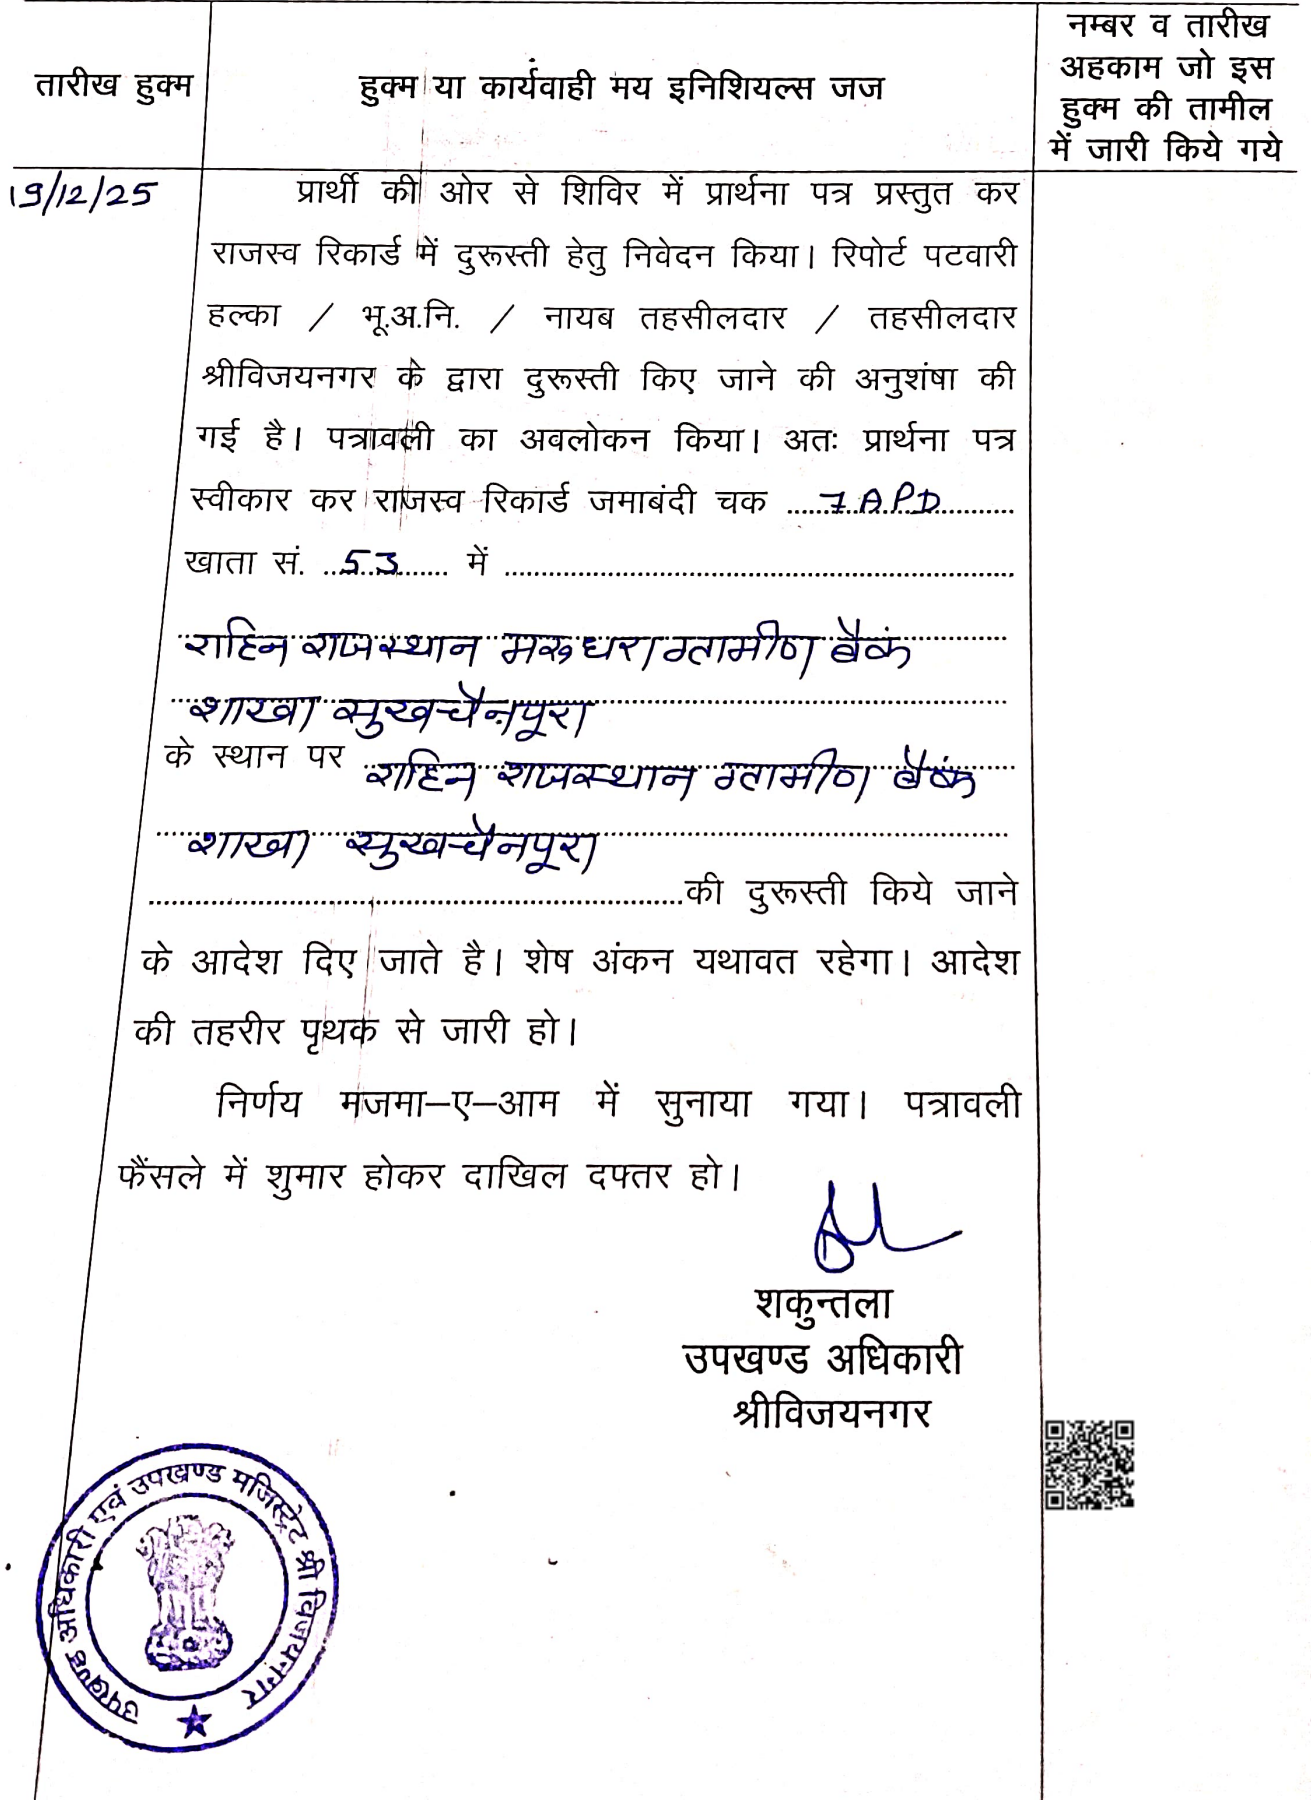 तारीख हुक्म
हुक्म या कार्यवाही मय इनिशियल्स जज
नम्बर व तारीख
अहकाम जो इस
हुक्म की तामील
में जारी किये गये
19/12/25
प्रार्थी की ओर से शिविर में प्रार्थना पत्र प्रस्तुत कर
राजस्व रिकार्ड में दुरूस्ती हेतु निवेदन किया। रिपोर्ट पटवारी
हल्का / भू.अ.नि. / नायब तहसीलदार / तहसीलदार
श्रीविजयनगर के द्वारा दुरूस्ती किए जाने की अनुशंषा की
गई है। पत्रावली का अवलोकन किया। अतः प्रार्थना पत्र
स्वीकार कर राजस्व रिकार्ड जमाबंदी चक 7 APD
खाता सं. 53 में
राहिन राजस्थान मरूधरा ग्रामीण बैकं
शाखा सुखचैनपूरा
के स्थान पर राहिन राजस्थान ग्रामीण बैंक
शाखा सुखचैनपूरा
की दुरूस्ती किये जाने
के आदेश दिए जाते है। शेष अंकन यथावत रहेगा। आदेश
की तहरीर पृथक से जारी हो।
निर्णय मजमा–ए–आम में सुनाया गया। पत्रावली
फैंसले में शुमार होकर दाखिल दफ्तर हो।
शकुन्तला
उपखण्ड अधिकारी
श्रीविजयनगर
उपखण्ड अधिकारी एवं उपखण्ड मजिस्ट्रेट श्री विजयनगर